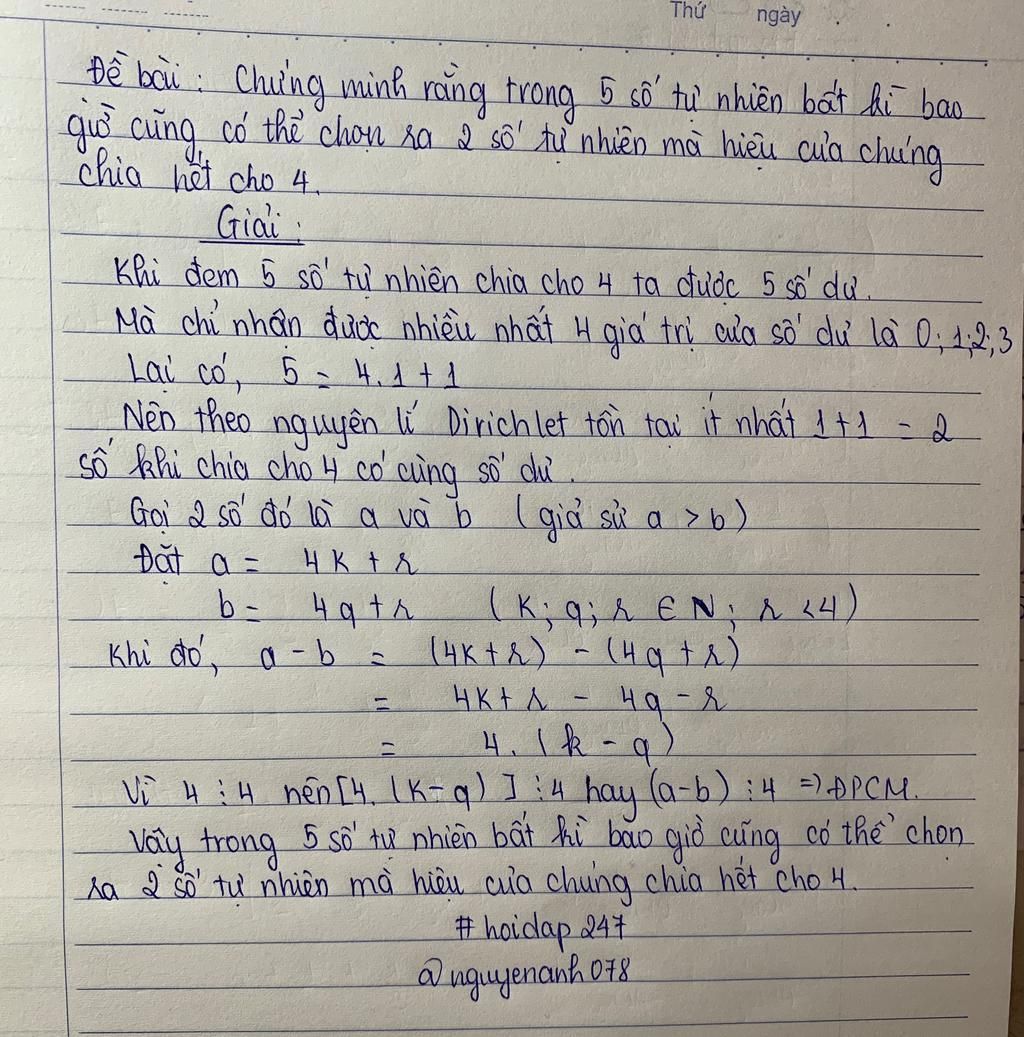 Thứ ngày
Đề bài: Chứng minh rằng trong 5 số tự nhiên bất kì bao
giờ cũng có thể chọn ra 2 số tự nhiên mà hiệu của chúng
chia hết cho 4.
Giải:
Khi đem 5 số tự nhiên chia cho 4 ta được 5 số dư.
Mà chỉ nhận được nhiều nhất 4 giá trị của số dư là 0; 1; 2; 3
Lại có, 5 = 4.1 + 1
Nên theo nguyên lí Dirichlet tồn tại ít nhất 1+1 = 2
số khi chia cho 4 có cùng số dư.
Gọi 2 số đó là a và b (giả sử a > b)
Đặt a = 4k + r
b = 4q + r (k; q; r ∈ N; r < 4)
Khi đó, a - b = (4k + r) - (4q + r)
= 4k + r - 4q - r
= 4. (k - q)
Vì 4 ⋮ 4 nên [4. (k - q)] ⋮ 4 hay (a-b) ⋮ 4 => ĐPCM.
Vậy trong 5 số tự nhiên bất kì bao giờ cũng có thể chọn
ra 2 số tự nhiên mà hiệu của chúng chia hết cho 4.
# hoidap 247
@nguyenanh078